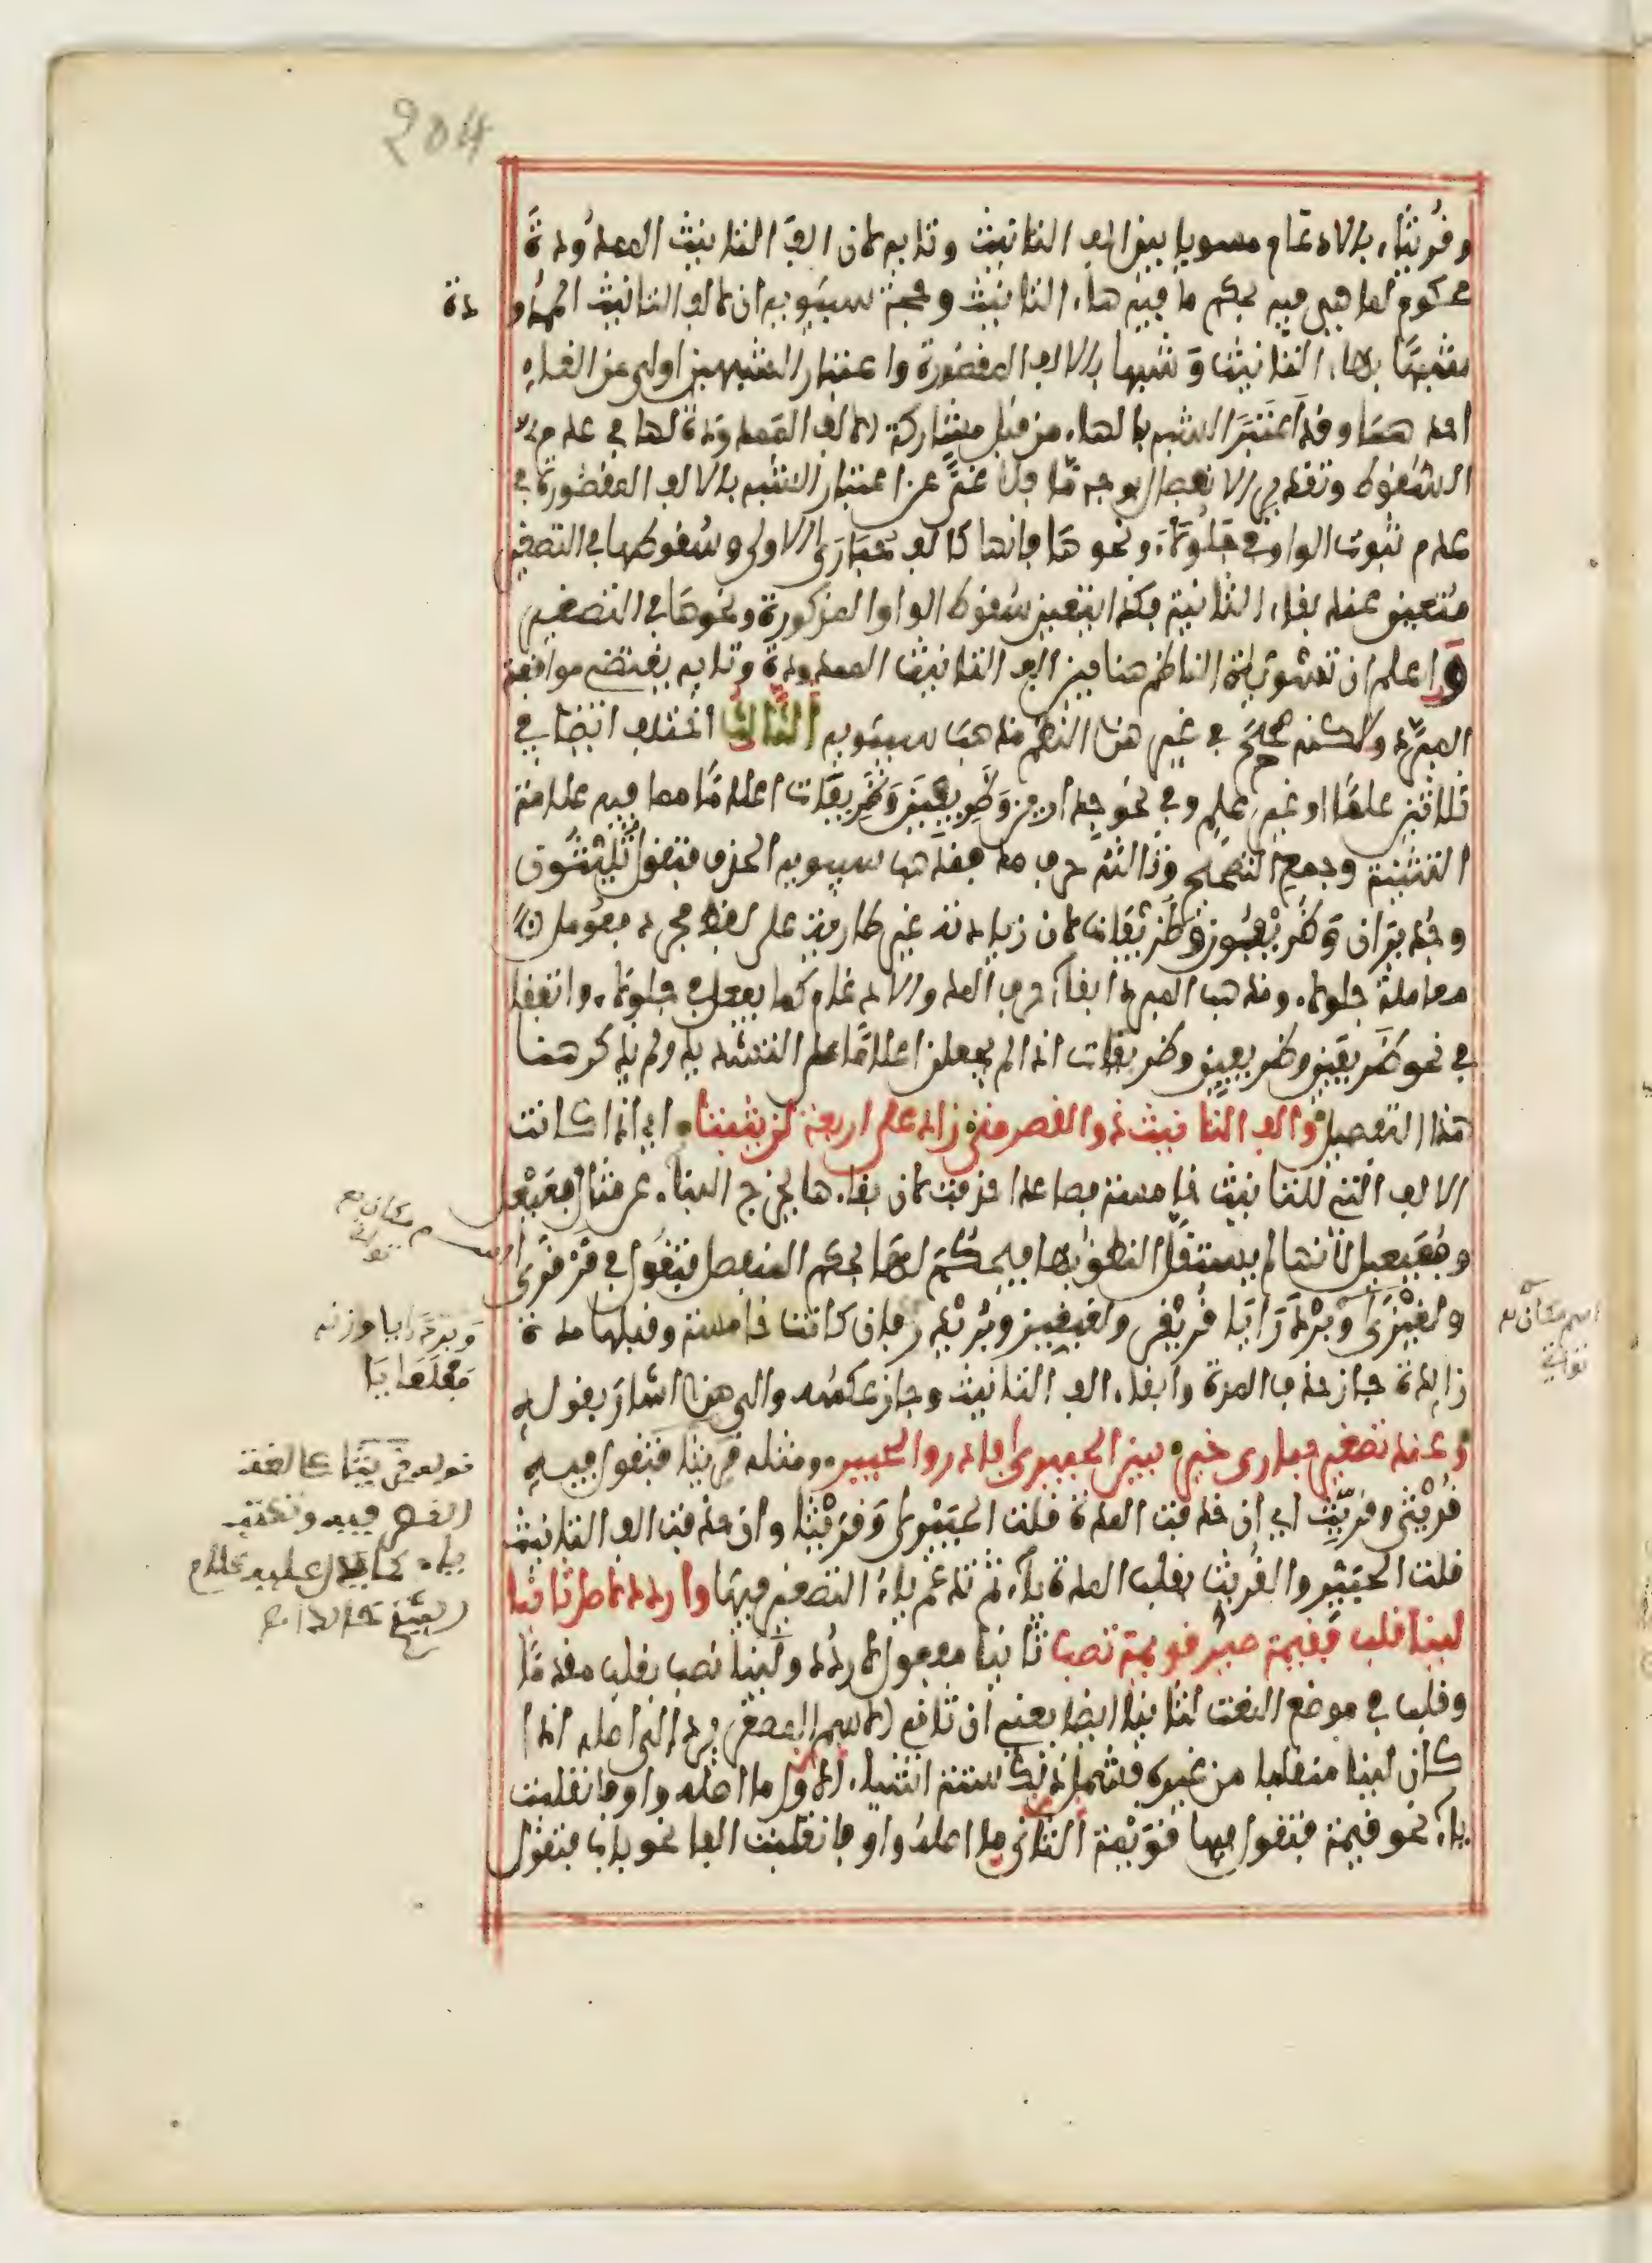 204
وقُريثاء بالادغام مسويا بين الف التانيث وتايه لان الف التانيث الممدودة
محكوم لها هي فيه بحكم ما فيه هاء التانيث وحجة سيبويه ان لالف التانيث الممدو دة
شبها بهاء التانيث وشبها بالالف المقصورة واعتبار الشبهين اولى من الغاء
احدهما وقد اعتبر الشبه بالهاء من قبل مشاركة الالف الممدودة لها في عدم
السقوط وتقدير الانفصال بوجه ما فلا غنى عن اعتبار الشبه بالالف المقصورة في
عدم ثبوت الواو في جلولاء ونحوها فانها كالف حبارى الاولى وسقوطها في التصغير
متعين عند بقاء الثانية فكذا يتعين سقوط الواو المذكورة ونحوها في التصغير
واعلم ان تسوية الناظم هنا بين الف التانيث الممدودة وتايه يقتضي موافقة
المبرد ولكنه صحح في غير هذا النظم مذهب سيبويه الثالث اختلف ايضا في
ثلاثين علما او غير علم وفي نحو جدارين وظريفين وظريفات اعلاما مما فيه علامة
التثنية وجمع التصحيح وثالثه حرف مد فمذهب سيبويه الحذف فتقول ثليثون
وجديران وظريفون وظريفات لان زيادته غير طارية على لفظ مجرد فعومل
معاملة جلولاء ومذهب المبرد ابقاء حرف المد والادغام كما يفعل في جلولاء واتفقا
في نحو ظريفين وظريفين وظريفات اذا لم يجعلن اعلاما على التشديد ولم يذكر هنا
هذا التفصيل والف التانيث ذو القصر متى زاد على اربعة لن يثبتا اي اذا كانت
الالف التي للتانيث خامسة فصاعدا حذفت لان بقاءها يخرج البناء عن مثال فعيعل
وفعيعيل لانها لم يستقل النطق بها فيحكم لها بحكم المنفصل فتقول في قرقرى
ولغيزى وبردرايا قريقر ولغيغيز وبريدر فان كانت خامسة وقبلها مدة
زايدة جاز حذف المدة وابقاء الف التانيث وجاز عكسه والى هذا اشار بقوله
وعند تصغير حبارى خير بين الحبيرى فادر والحبير ومثله قريثا فتقول فيه
قريثى وقريث اي ان حذفت المدة قلت الحبيرى وقريثا وان حذفت الف التانيث
قلت الحبير والقريث بقلب المدة ياء ثم تدغم ياء التصغير فيها واردد لاصل ثانيا
لينا قلب فقيمة صير قويمة تصب ثانيا مفعول لاردد ولينا نصب بقلب مقدما
وقلب في موضع النعت لثانيا ايضا يعني ان ثاني الاسم المصغر يرد الى اصله اذا
كان لينا منقلبا من غيره فشمل ذلك ستة اشياء الاول ما اصله واو فانقلبت
ياء نحو قيمة فتقول فيها قويمة الثاني ما اصله واو فانقلبت الفا نحو باب فتقول
وبردرايا وزنه
فعلعايا